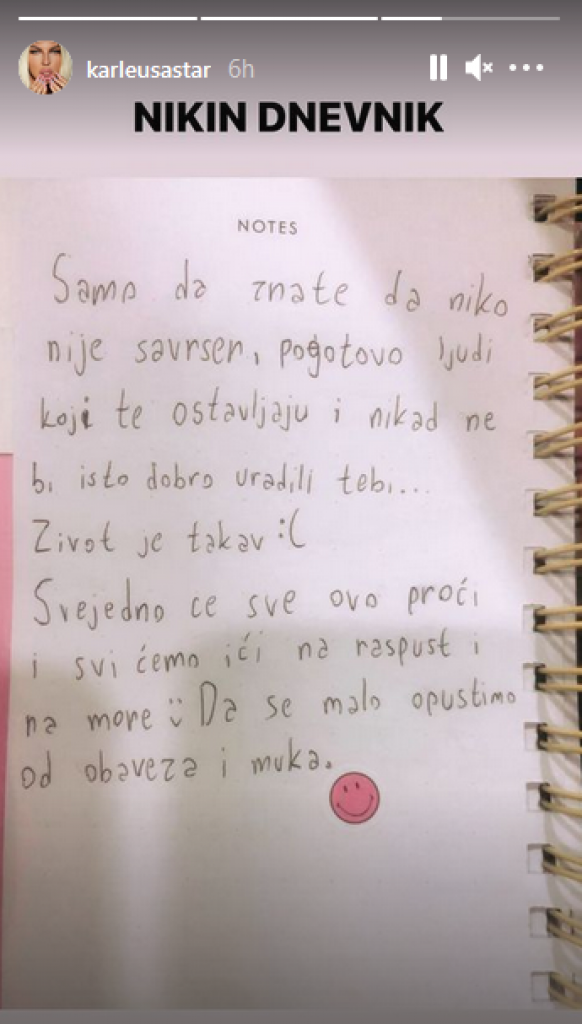 karleusastar 6h
NIKIN DNEVNIK
NOTES
Samo da znate da niko
nije savrsen, pogotovo ljudi
koji te ostavljaju i nikad ne
bi isto dobro uradili tebi...
Zivot je takav :(
Svejedno ce sve ovo proći
i svi ćemo ići na raspust i
na more :) Da se malo opustimo
od obaveza i muka.